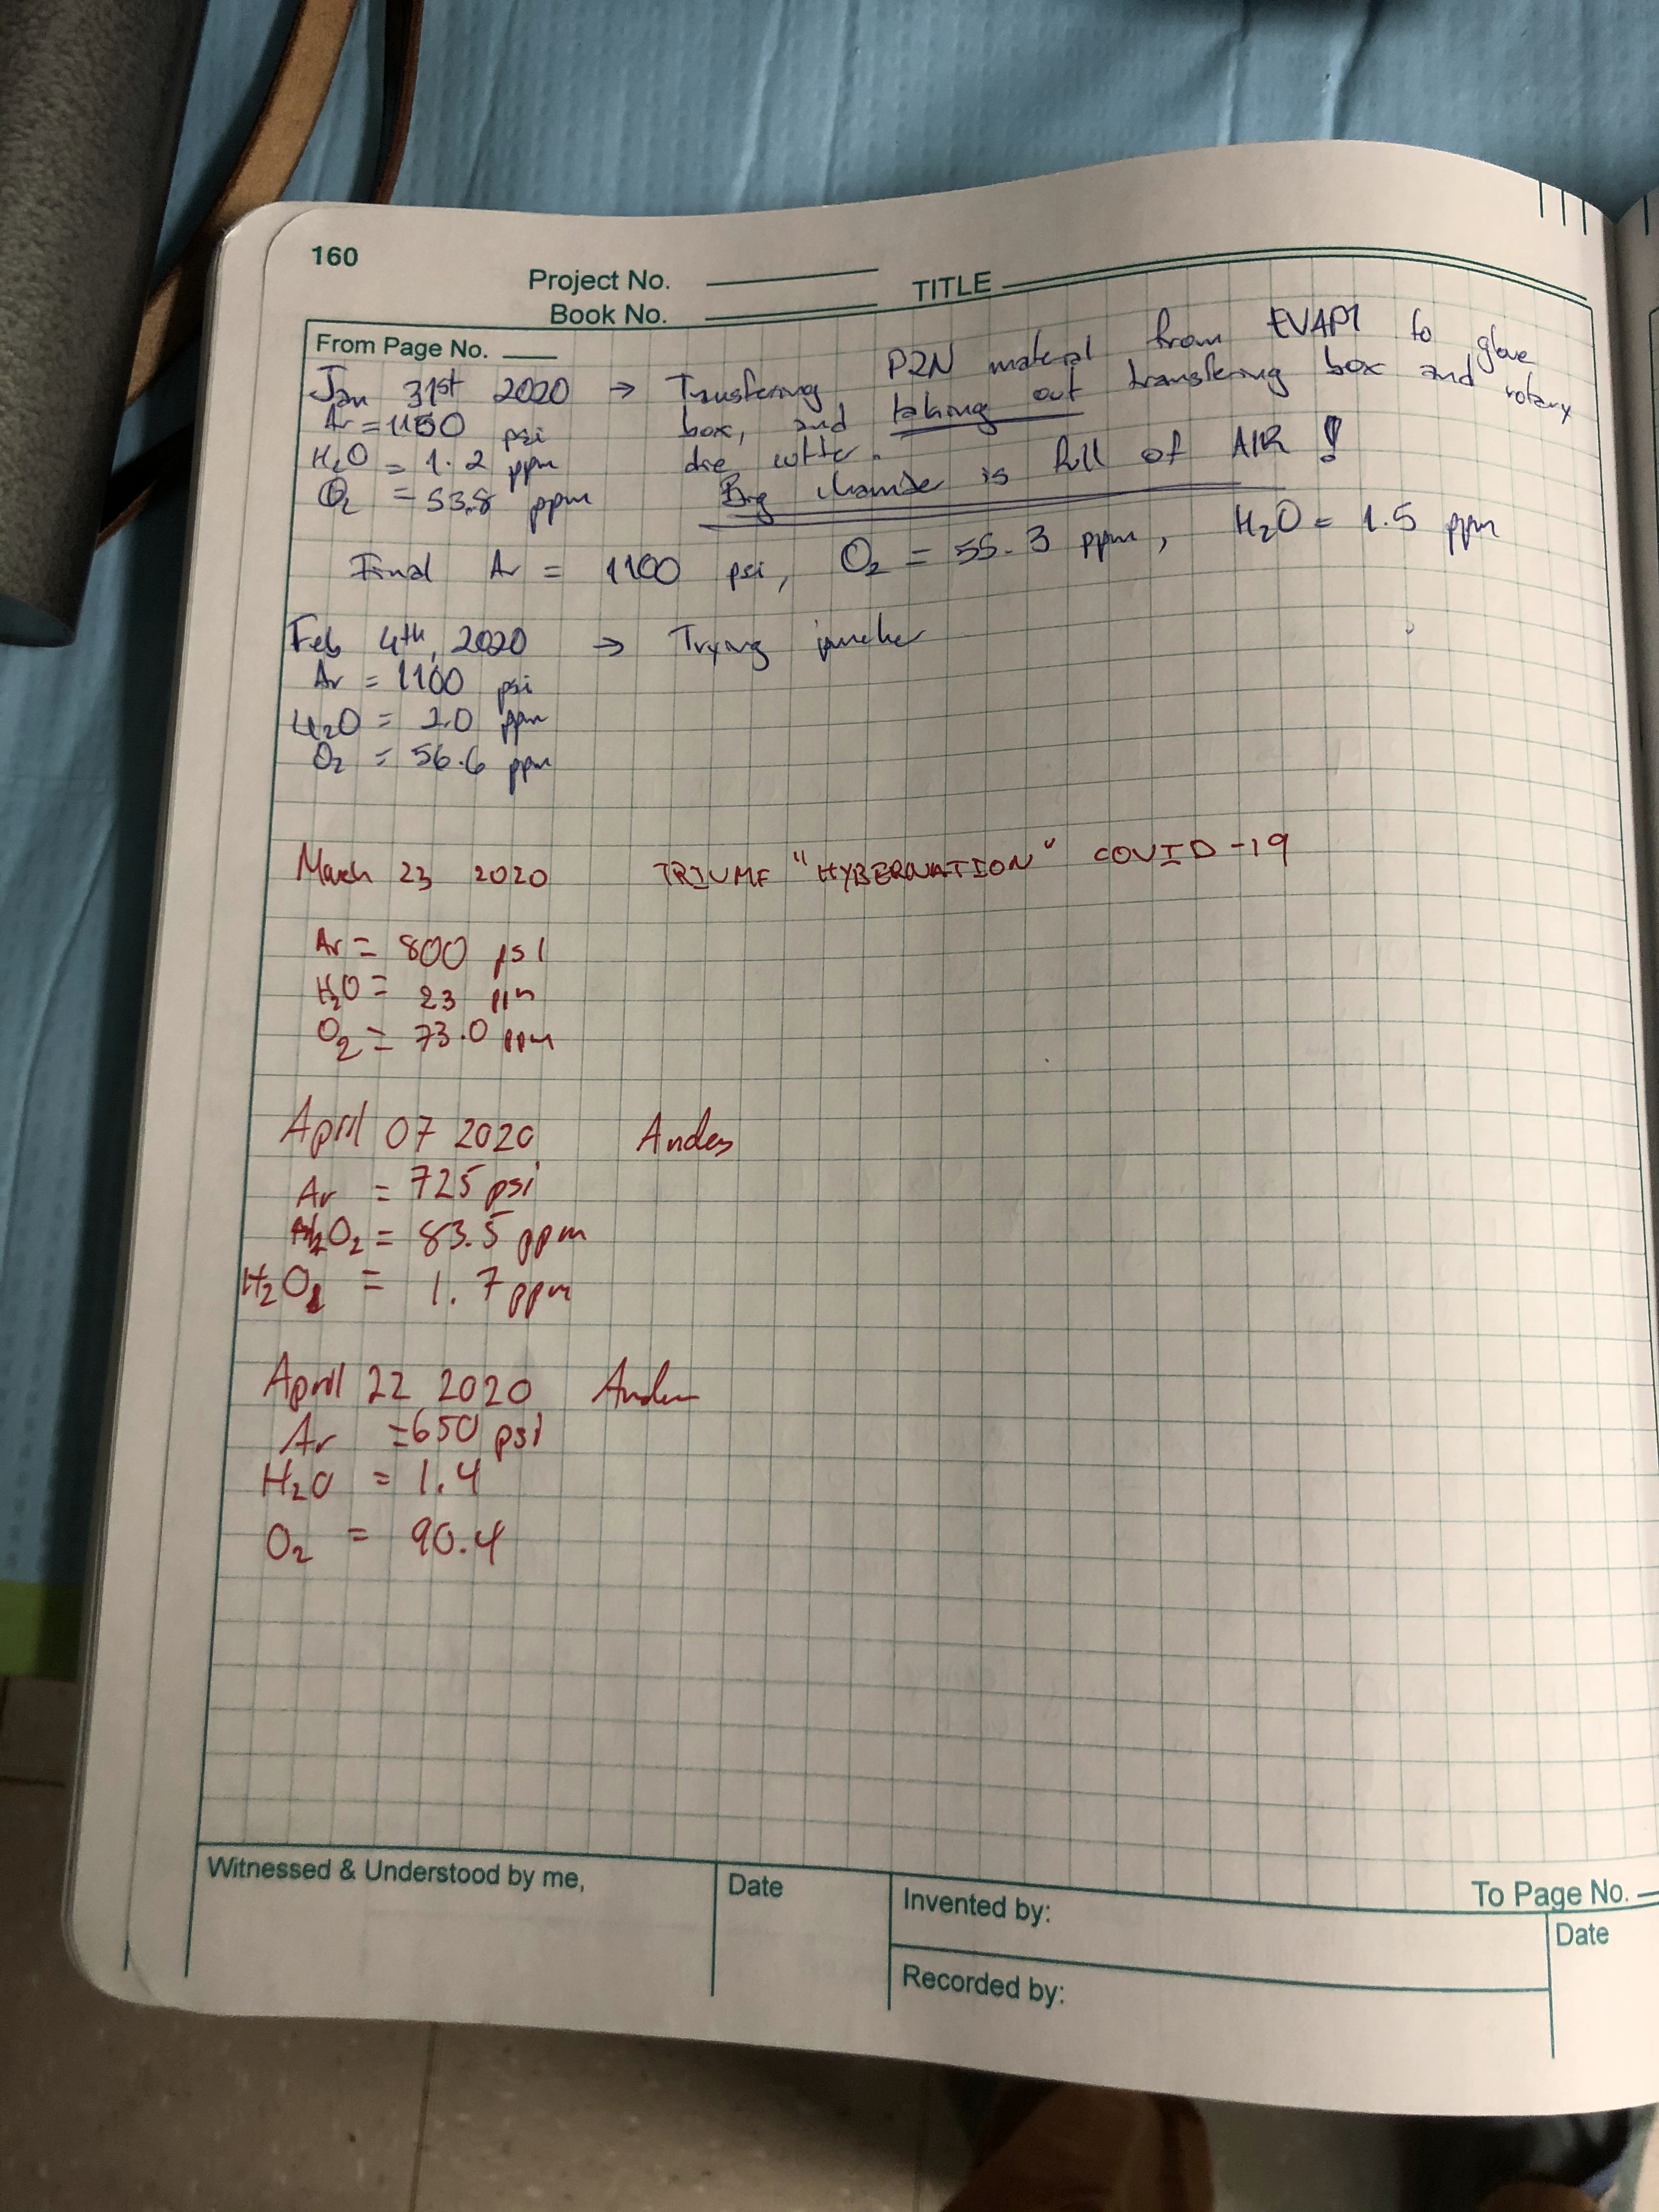 160
Project No.
Book No.
TITLE
From Page No.
Jan 31st 2020 → Transfering P2N material from EVAP1 to glove
box, and taking out transfering box and rotary
die cutter.
Ar = 1150 psi
H2O = 1.2 ppm
O2 = 53.8 ppm
Big chamber is full of AIR !
Final Ar = 1100 psi, O2 = 55.3 ppm, H2O = 1.5 ppm
Feb 4th, 2020 → Trying puncher
Ar = 1100 psi
H2O = 2.0 ppm
O2 = 56.6 ppm
March 23 2020 TRIUMF "HYBERNATION" COVID-19
Ar = 800 psi
H2O = 23 ppm
O2 = 73.0 ppm
April 07 2020 Andes
Ar = 725 psi
O2 = 83.5 ppm
H2O = 1.7 ppm
April 22 2020
Ar = 650 psi
H2O = 1.4
O2 = 90.4
Witnessed & Understood by me,
Date
Invented by:
Recorded by:
To Page No.
Date